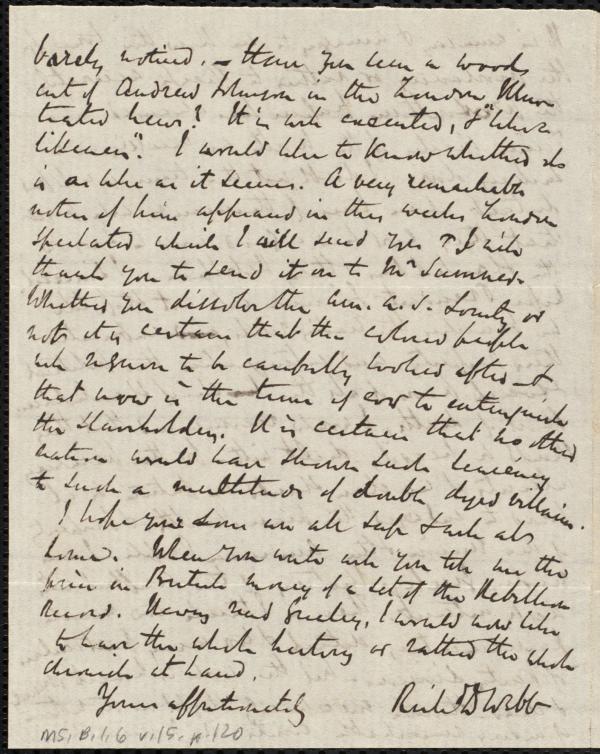 barely noticed. – Have you seen a wood
cut of Andrew Johnson in the London Illus
trated News? It is well executed, &
likeness". I would like to know whether it
is as like as it seems. A very remarkable
notice of him appeared in this week's London
Spectator which I will send you & I will
thank you to send it on to Mr Sumner.
Whether you dissolve the Am. A. S. Society or
not it is certain that the colored people
will require to be carefully looked after – &
that now is the time if ever to extinguish
the slaveholders. It is certain that no other
nation would have shown such leniency
to such a multitude of double dyed villains.
I hope your sons are all safe & well at
home. When you write will you tell me the
price in British money of a set of the Rebellion
Record. Having read Greeley, I would now like
to have the whole history or rather the whole
chronicle at hand.
Yours affectionately Richd D Webb
MS. B.1.6 v.15. p. 120